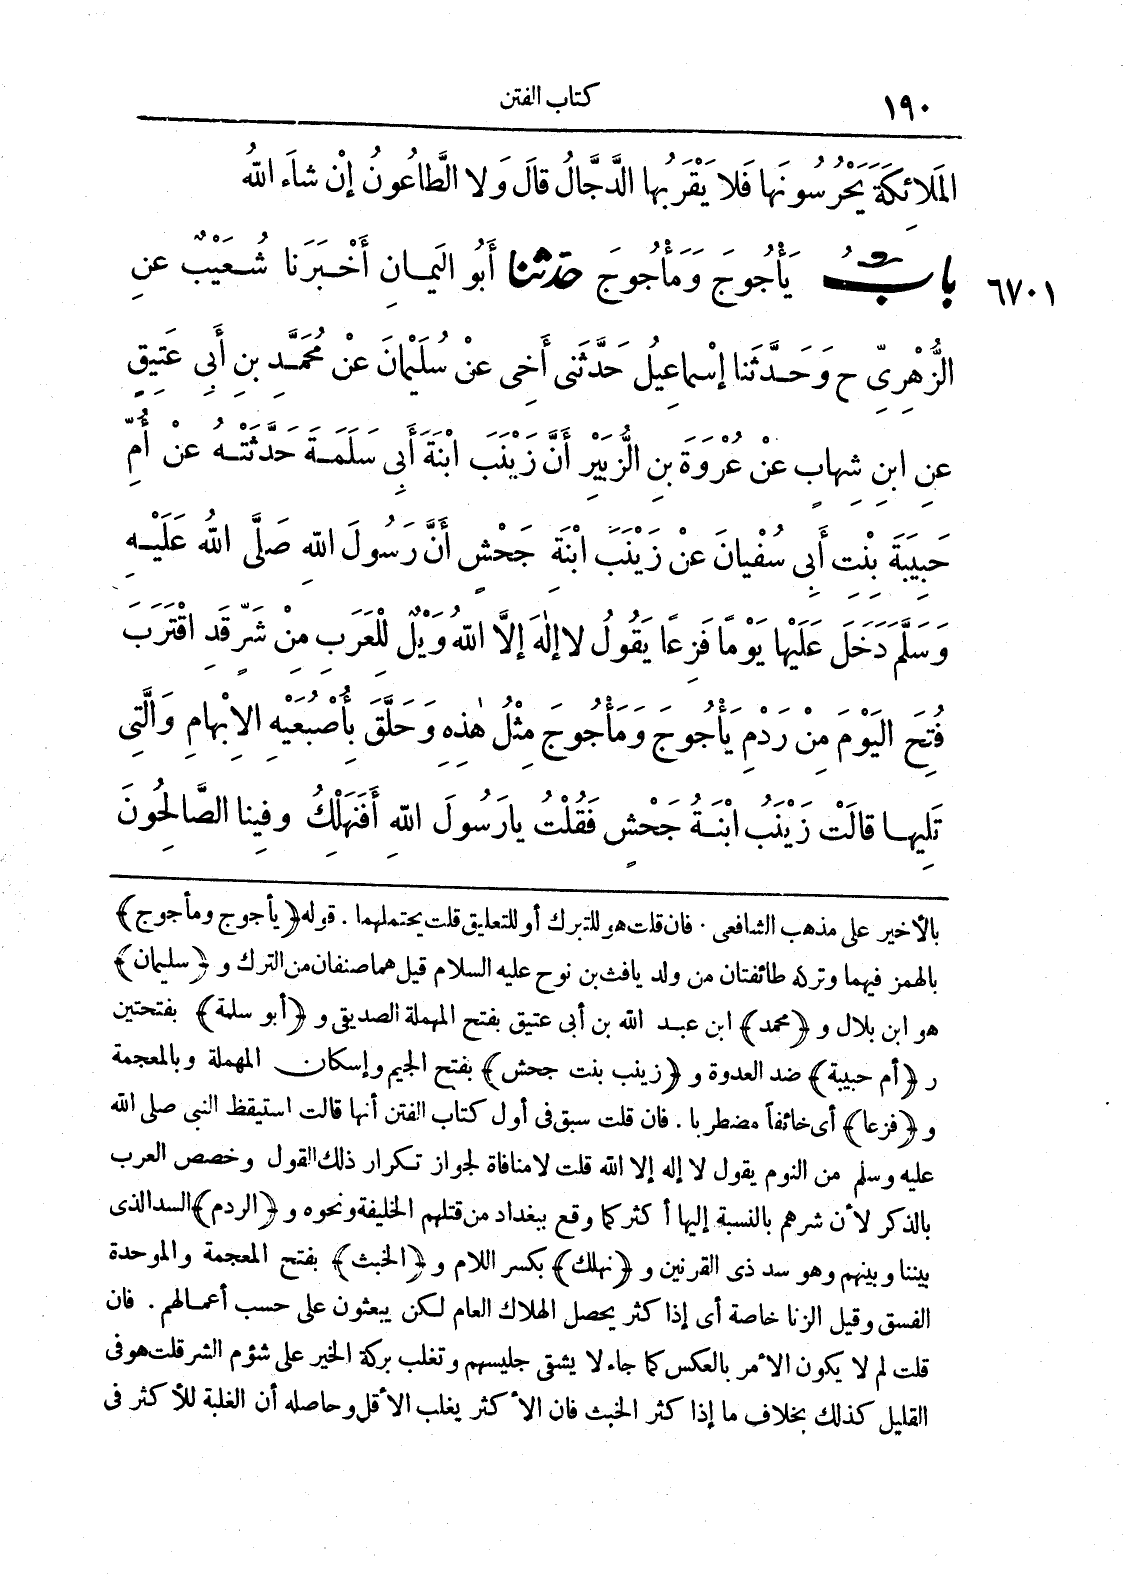 ١٩٠
كتاب الفتن
المَلَائِكَةَ يَحْرُسُونَهَا فَلا يَقْرَبُهَا الدَّجَّالُ قالَ وَلا الطَّاعُونُ إِنْ شاءَ اللهُ
٦٧٠١
بابُ يَأْجُوجَ وَمَأْجُوجَ حدثنا أَبُو اليَمانِ أَخْبَرَنا شُعَيْبٌ عنِ
الزُّهْرِيِّ ح وَحَدَّثَنا إِسْماعِيلُ حَدَّثَنِى أَخِى عنْ سُلَيْمانَ عنْ مُحَمَّدِ بنِ أَبِى عَتِيقٍ
عنِ ابنِ شِهابٍ عنْ عُرْوَةَ بنِ الزُّبَيْرِ أَنَّ زَيْنَبَ ابْنَةَ أَبِى سَلَمَةَ حَدَّثَتْهُ عنْ أُمِّ
حَبِيبَةَ بِنْتِ أَبِى سُفْيانَ عنْ زَيْنَبَ ابْنَةِ جَحْشٍ أَنَّ رَسُولَ اللهِ صَلَّى اللهُ عَلَيْهِ
وَسَلَّمَ دَخَلَ عَلَيْها يَوْمًا فَزِعًا يَقُولُ لا إِلٰهَ إِلَّا اللهُ وَيْلٌ لِلْعَرَبِ مِنْ شَرٍّ قَدِ اقْتَرَبَ
فُتِحَ اليَوْمَ مِنْ رَدْمِ يَأْجُوجَ وَمَأْجُوجَ مِثْلُ هٰذِهِ وَحَلَّقَ بِأُصْبُعَيْهِ الإِبْهامِ وَالَّتِى
تَلِيها قالَتْ زَيْنَبُ ابْنَةُ جَحْشٍ فَقُلْتُ يارَسُولَ اللهِ أَفَنَهْلِكُ وفِينا الصَّالِحُونَ
بالأخير على مذهب الشافعى . فان قلت هو للتبرك أو للتعليق قلت يحتملهما . قوله ﴿يأجوج ومأجوج﴾
بالهمز فيهما وتركه طائفتان من ولد يافث بن نوح عليه السلام قيل هما صنفان من الترك و ﴿سليمان﴾
هو ابن بلال و ﴿محمد﴾ ابن عبد الله بن أبى عتيق بفتح المهملة الصديقى و ﴿أبو سلمة﴾ بفتحتين
و ﴿أم حبيبة﴾ ضد العدوة و ﴿زينب بنت جحش﴾ بفتح الجيم وإسكان المهملة وبالمعجمة
و ﴿فزعا﴾ أى خائفاً مضطربا . فان قلت سبق فى أول كتاب الفتن أنها قالت استيقظ النبى صلى الله
عليه وسلم من النوم يقول لا إله إلا الله قلت لا منافاة لجواز تكرار ذلك القول وخصص العرب
بالذكر لأن شرهم بالنسبة إليها أكثر كما وقع ببغداد من قتلهم الخليفة ونحوه و ﴿الردم﴾ السد الذى
بيننا وبينهم وهو سد ذى القرنين و ﴿نهلك﴾ بكسر اللام و ﴿الخبث﴾ بفتح المعجمة والموحدة
الفسق وقيل الزنا خاصة أى إذا كثر يحصل الهلاك العام لكن يبعثون على حسب أعمالهم . فان
قلت لم لا يكون الأمر بالعكس كما جاء لا يشقى جليسهم وتغلب بركة الخير على شؤم الشر قلت هو فى
القليل كذلك بخلاف ما إذا كثر الخبث فان الأكثر يغلب الأقل وحاصله أن الغلبة للأكثر فى